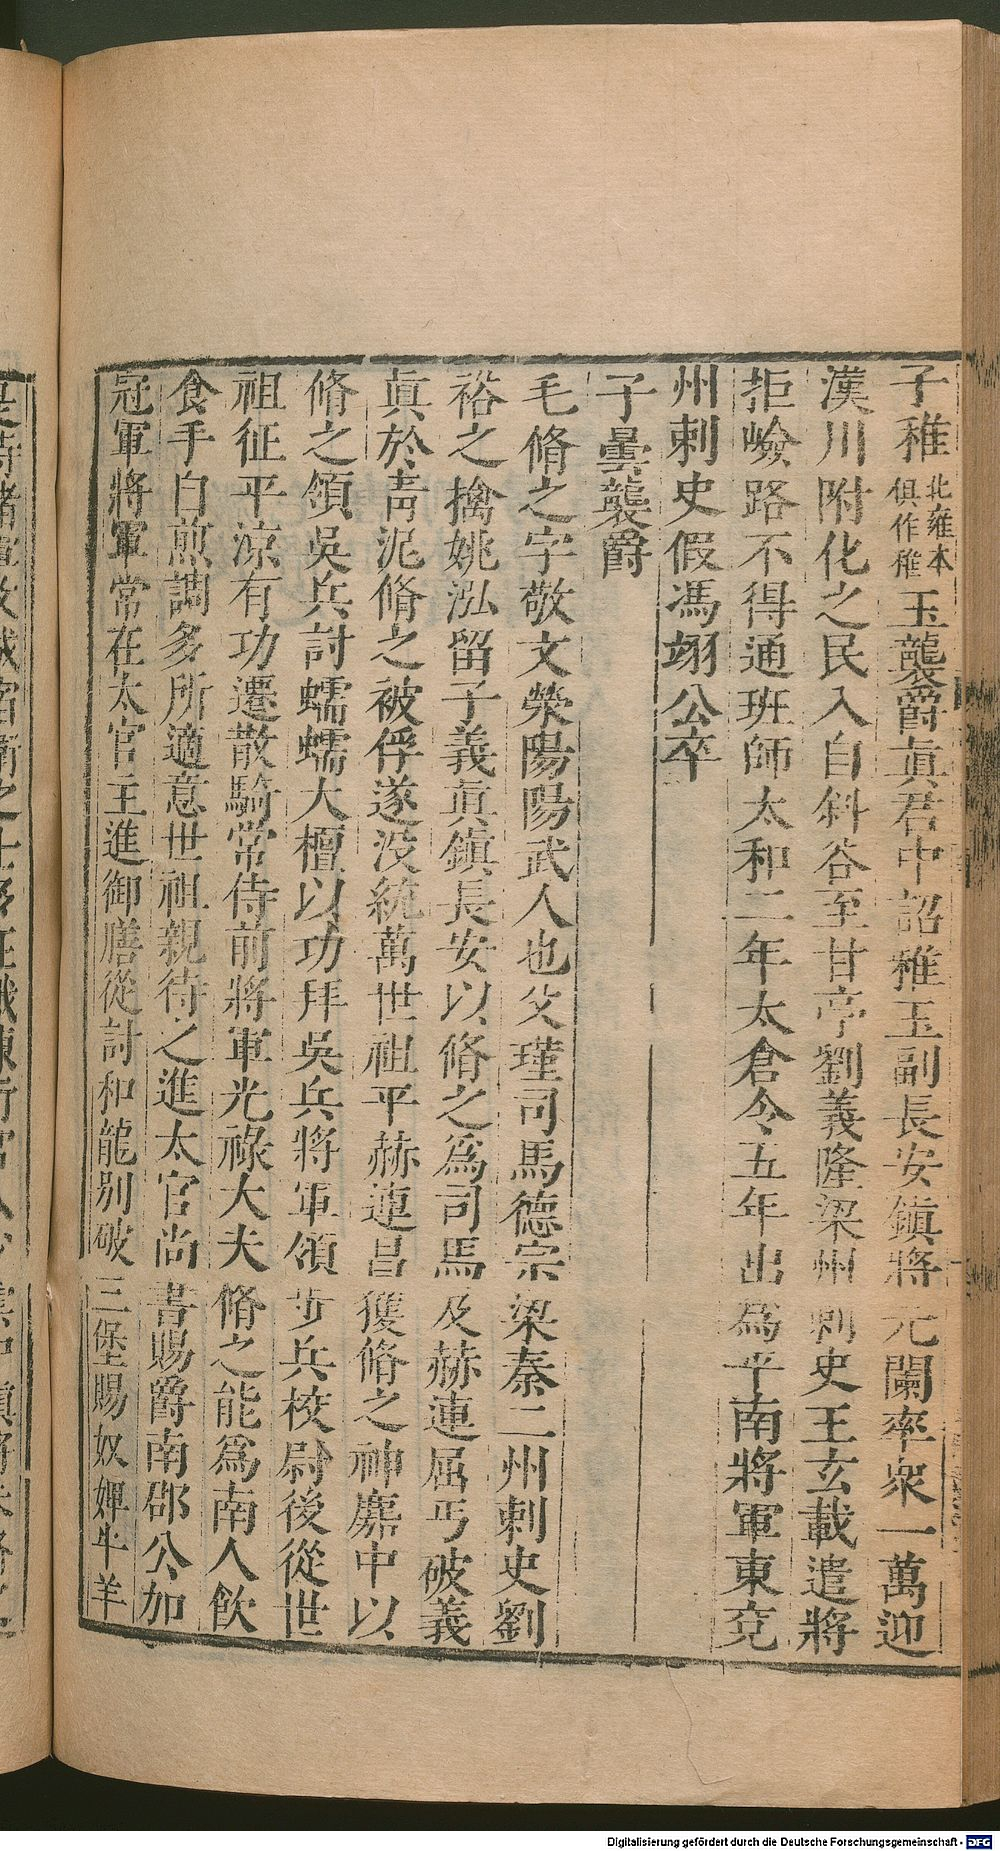 子稚北雍本俱作稚玉襲爵眞君中詔稚玉副長安鎮將元蘭率衆一萬迎
漢川附化之民入自斜谷至甘亭劉義隆梁州刺史王玄載遣將
拒嶮路不得通班師太和二年太倉令五年出爲平南將軍東兗
州刺史假馮翊公卒
子曇襲爵
毛脩之字敬文滎陽陽武人也父瑾司馬德宗梁秦二州刺史劉
裕之擒姚泓留子義眞鎮長安以脩之爲司馬及赫連屈丐破義
眞於靑泥脩之被俘遂没統萬世祖平赫連昌獲脩之神䴥中以
脩之領吳兵討蠕蠕大檀以功拜吳兵將軍領步兵校尉後從世
祖征平涼有功遷散騎常侍前將軍光祿大夫脩之能爲南人飲
食手自煎調多所適意世祖親待之進太官尚書賜爵南郡公加
冠軍將軍常在太官主進御膳從討和龍别破三堡賜奴婢牛羊
Digitalisierung gefördert durch die Deutsche Forschungsgemeinschaft - DFG